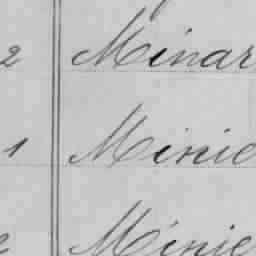 2 Minar
1 Minie
Minie